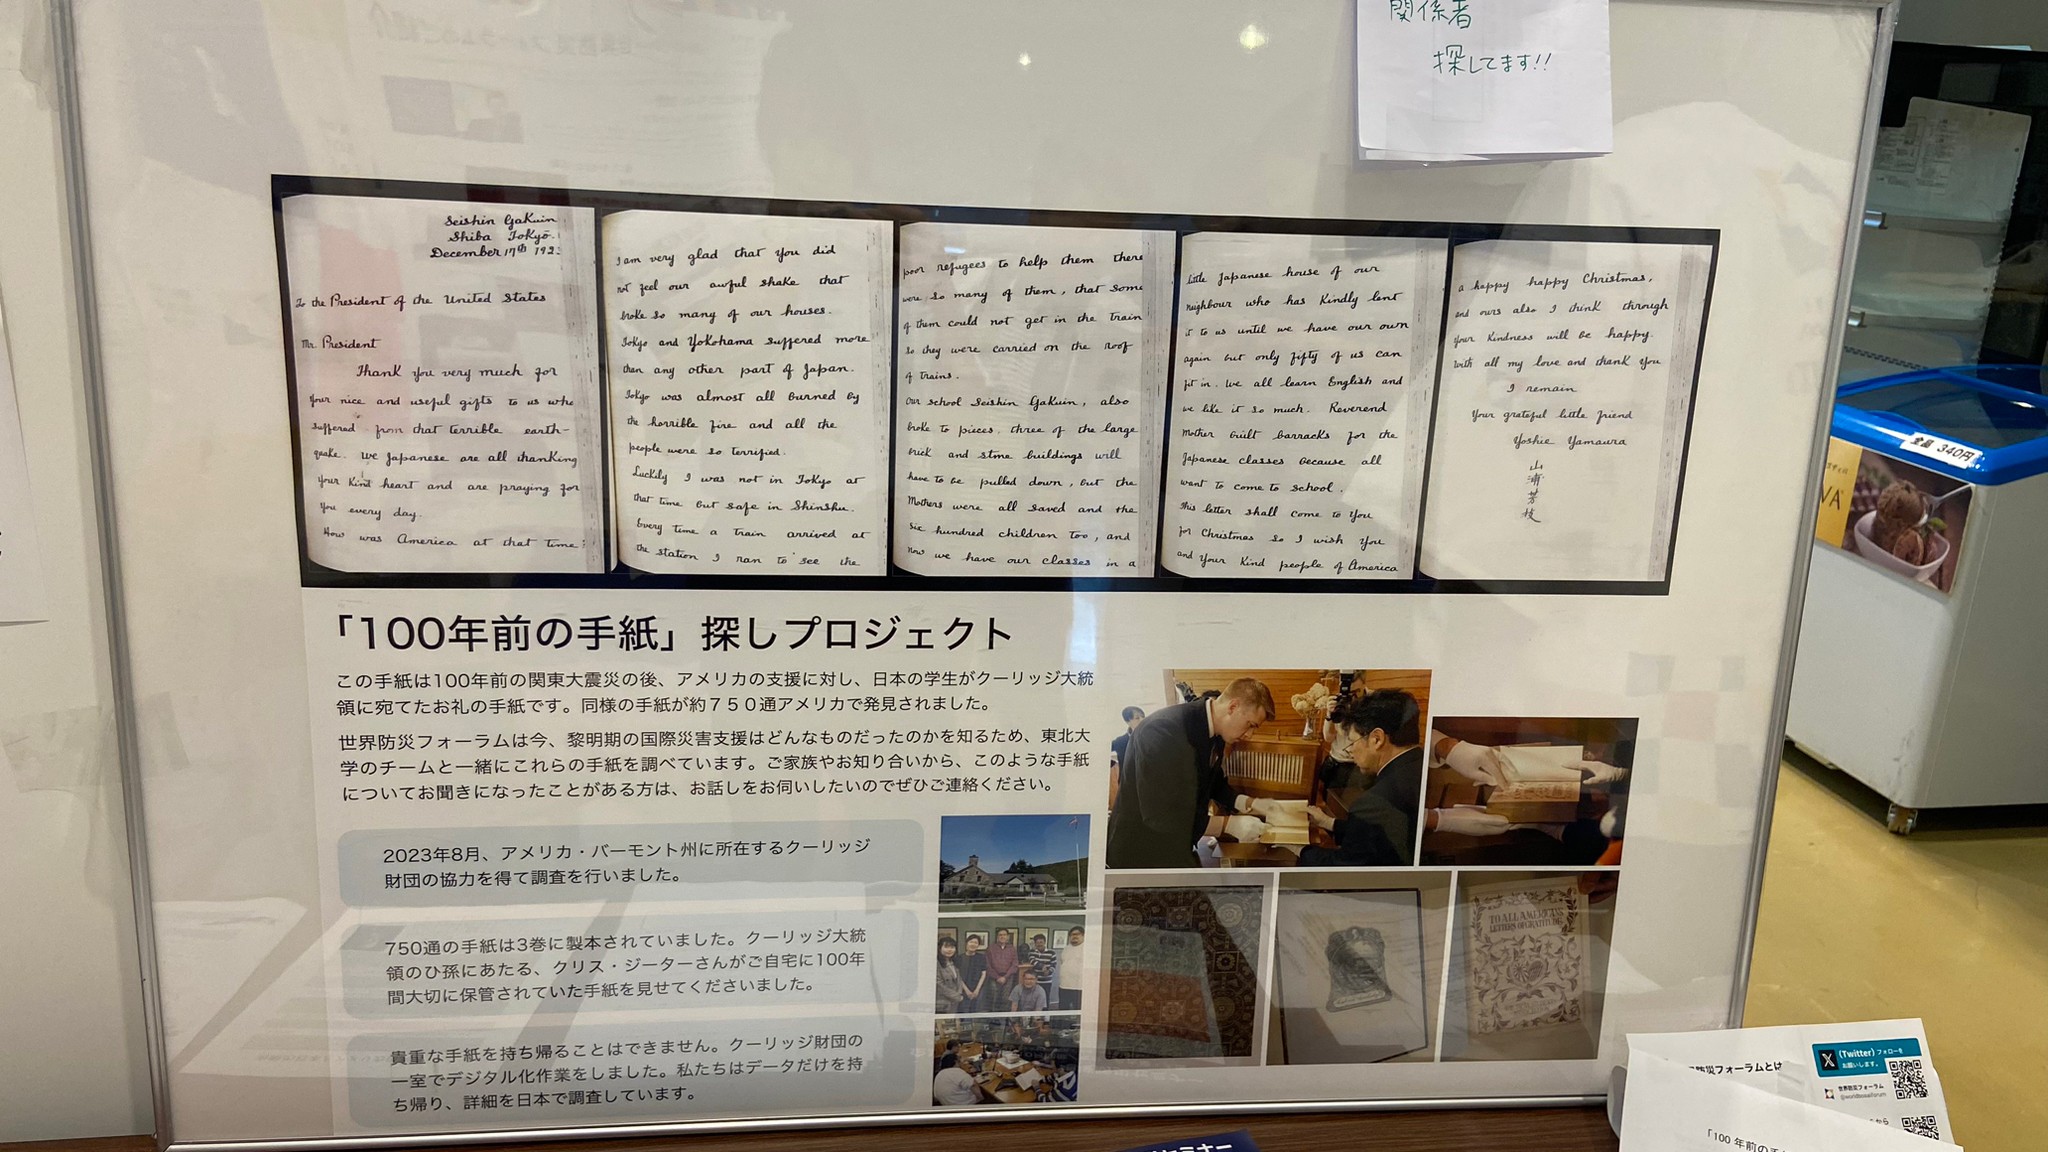 関係者
探してます!!
Seishin Gakuin
Shiba Tokyo.
December 17th 192
To the President of the United States
Mr. President
Thank you very much for
your nice and useful gifts to us who
suffered from that terrible earth-
quake. We Japanese are all thanking
your kind heart and are praying for
you every day.
How was America at that time?
I am very glad that you did
not feel our awful shake that
broke so many of our houses.
Tokyo and Yokohama suffered more
than any other part of Japan.
Tokyo was almost all burned by
the horrible fire and all the
people were so terrified.
Luckily I was not in Tokyo at
that time but safe in Shinshu.
Every time a train arrived at
the station I ran to see the
poor refugees to help them there
were so many of them, that some
of them could not get in the train
so they were carried on the roof
of trains.
Our school Seishin Gakuin, also
broke to pieces. three of the large
brick and stone buildings will
have to be pulled down, but the
Mothers were all saved and the
six hundred children too, and
now we have our classes in a
little Japanese house of our
neighbour who has kindly lent
it to us until we have our own
again but only fifty of us can
fit in. We all learn English and
we like it so much. Reverend
Mother built barracks for the
Japanese classes because all
want to come to school.
This letter shall come to you
for Christmas so I wish you
and your kind people of America
a happy happy Christmas,
and ours also I think through
your kindness will be happy.
With all my love and thank you
I remain
Your grateful little friend
Yoshie Yamaura
山浦芳枝
「100年前の手紙」探しプロジェクト
この手紙は100年前の関東大震災の後、アメリカの支援に対し、日本の学生がクーリッジ大統
領に宛てたお礼の手紙です。同様の手紙が約７５０通アメリカで発見されました。
世界防災フォーラムは今、黎明期の国際災害支援はどんなものだったのかを知るため、東北大
学のチームと一緒にこれらの手紙を調べています。ご家族やお知り合いから、このような手紙
についてお聞きになったことがある方は、お話しをお伺いしたいのでぜひご連絡ください。
2023年8月、アメリカ・バーモント州に所在するクーリッジ
財団の協力を得て調査を行いました。
750通の手紙は3巻に製本されていました。クーリッジ大統
領のひ孫にあたる、クリス・ジーターさんがご自宅に100年
間大切に保管されていた手紙を見せてくださいました。
貴重な手紙を持ち帰ることはできません。クーリッジ財団の
一室でデジタル化作業をしました。私たちはデータだけを持
ち帰り、詳細を日本で調査しています。
TO ALL AMERICANS
LETTERS OF GRATITUDE
全品 340円
VA
防災フォーラムとは
X (Twitter) フォローを
お願いします。
世界防災フォーラム
@worldbosaiforum
から
「100 年前の手
セミナー